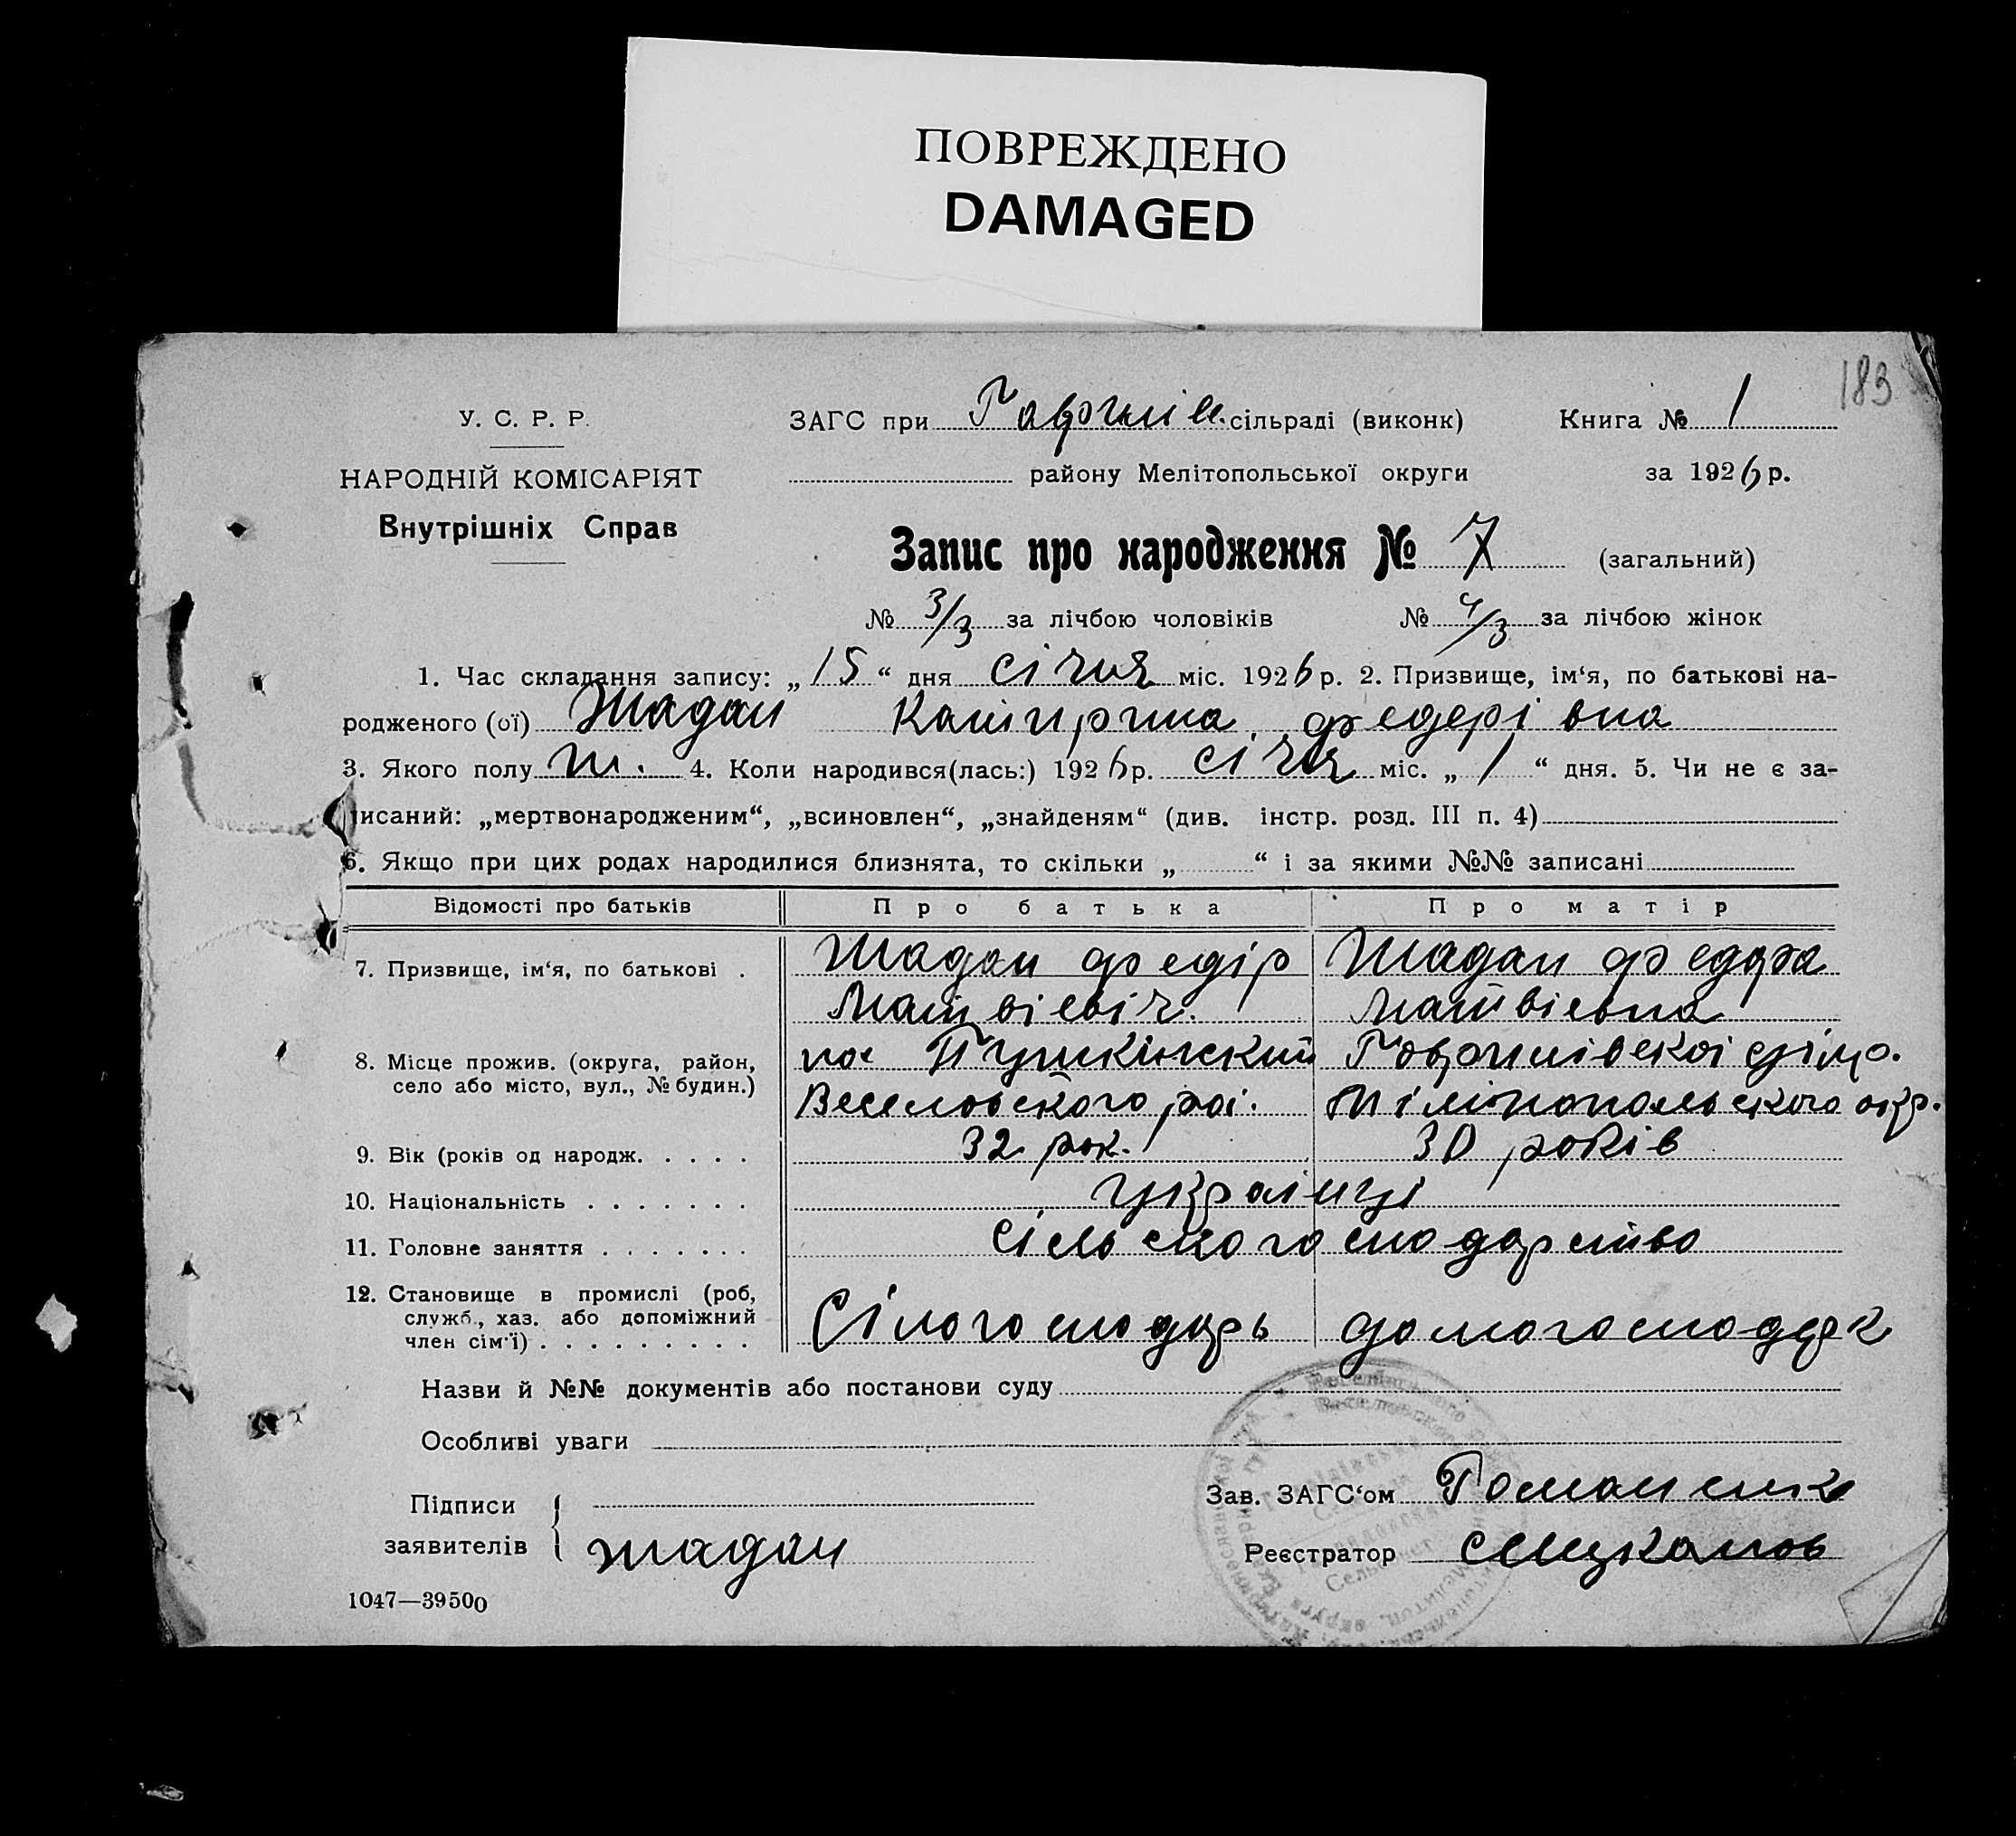 ПОВРЕЖДЕНО
DAMAGED
183
У. С. Р. Р.
НАРОДНІЙ КОМІСАРІЯТ
Внутрішніх Справ
ЗАГС при сільраді (виконк)
Книга № 1
району Мелітопольської округи
за 1926 р.
Запис про народження № 7 (загальний)
№ 3/3 за лічбою чоловіків № 4/3 за лічбою жінок
1. Час складання запису: „ 15 “ дня січня міс. 1926 р. 2. Призвище, ім‘я, по батькові на-
родженого (ої) Шадан Катирина федерівна
3. Якого полу ж. 4. Коли народився(лась:) 1926 р. січня міс. „ 1 “ дня. 5. Чи не є за-
писаний: „мертвонародженим“, „всиновлен“, „знайденям“ (див. інстр. розд. III п. 4)
6. Якщо при цих родах народилися близнята, то скільки „ “ і за якими №№ записані
Відомості про батьків Про батька Про матір
7. Призвище, ім‘я, по батькові . Шадан федір Шадан
Матвієвіч. Матвієвна
8. Місце прожив. (округа, район, пос Пушкінский
село або місто, вул., № будин.) Веселовського рай. окр.
9. Вік (років од народж. . . . . 32 рок. 30 років
10. Національність . . . . . . . українці
11. Головне заняття . . . . . . . сільского сподарство
12. Становище в промислі (роб,
служб., хаз. або допоміжний
член сім‘ї) . . . . . . . . . Сілогосподарь домогосподарк
Назви й №№ документів або постанови суду
Особливі уваги
Підписи
заявителів Шадан
Зав. ЗАГС‘ом Романенко
Реєстратор
1047—39500